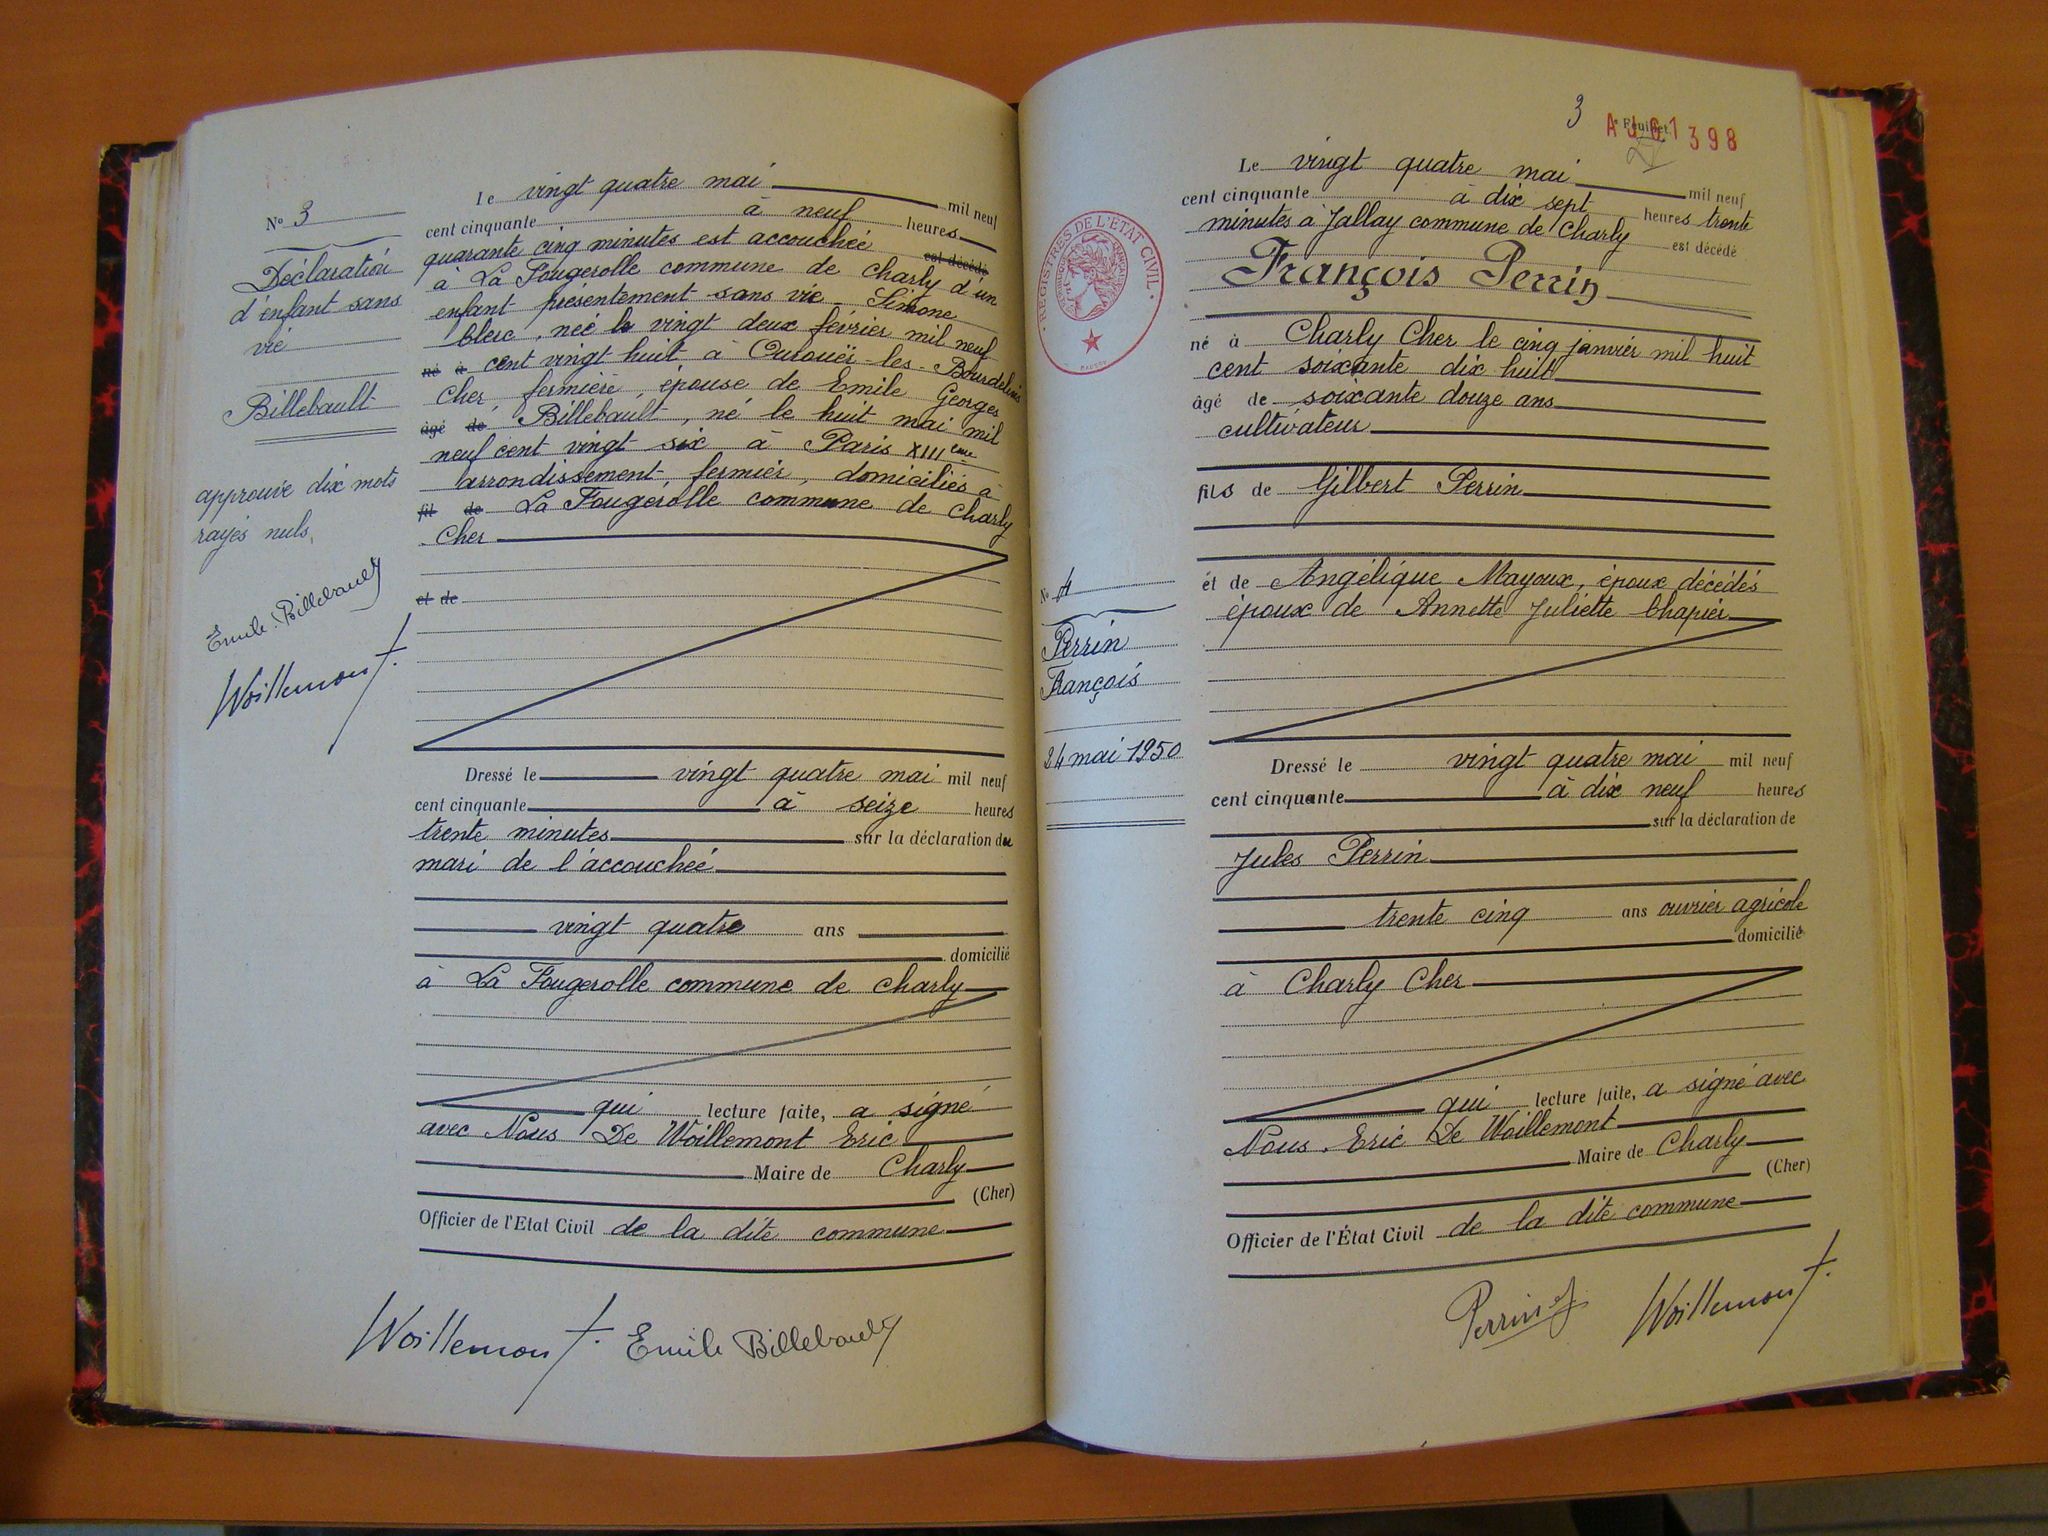 N° 3
Déclaration
d'enfant sans
vie
Billebault
approuvé dix mots
rayés nuls.
Emile Billebault
Woillemont
Le vingt quatre mai mil neuf
cent cinquante à neuf heures
quarante cinq minutes est accouchée est décédé
à La Fougerolle commune de Charly d'un
enfant présentement sans vie Simone
Clerc, née le vingt deux février mil neuf
né à cent vingt huit à Ourouër-les-Bourdelins
Cher fermière, épouse de Emile Georges
âgé de Billebault, né le huit mai mil
neuf cent vingt six à Paris XIIIeme
arrondissement, fermier, domiciliés à
fil de La Fougerolle commune de Charly
Cher
et de
Dressé le vingt quatre mai mil neuf
cent cinquante à seize heures
trente minutes sur la déclaration du
mari de l'accouchée
vingt quatre ans
domicilié
à La Fougerolle commune de Charly
qui lecture faite, a signé
avec Nous De Woillemont Eric
Maire de Charly
(Cher)
Officier de l'Etat Civil de la dite commune
Woillemont Emile Billebault
3 e Feuillet
A J 61 398
REGISTRES DE L'ETAT CIVIL
N° 4
Perrin
François
24 mai 1950
Le vingt quatre mai mil neuf
cent cinquante à dix sept heures trente
minutes à Jallay commune de Charly est décédé
François Perrin
né à Charly Cher le cinq janvier mil huit
cent soixante dix huit
âgé de soixante douze ans
cultivateur
fils de Gilbert Perrin
et de Angélique Mayoux, époux décédés
époux de Annette Juliette Chapier
Dressé le vingt quatre mai mil neuf
cent cinquante à dix neuf heures
sur la déclaration de
Jules Perrin
trente cinq ans ouvrier agricole
domicilié
à Charly Cher
qui lecture faite, a signé avec
Nous. Eric De Woillemont
Maire de Charly
(Cher)
Officier de l'État Civil de la dite commune
Perrin J. Woillemont